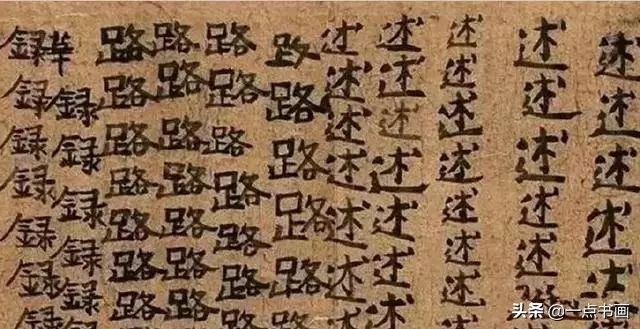 述述述述述述述述
述述述述述述
述述述述述述述述
述述述述述述述
述述述述述述述
路路路路路
路路路路路路路
路路路路路路路
路路路路路路路
華録録録録録録
録録録録録録録
头条 @一点书画